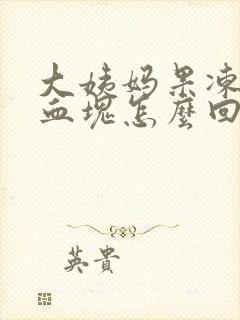 大姨妈果凍
血塊怎麼回
英貴